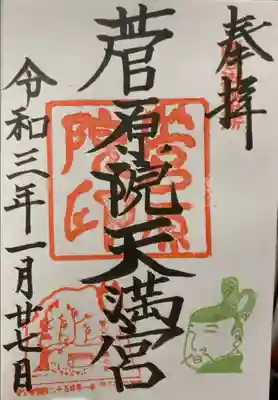 奉拝
菅原院天満宮
令和三年一月廿七日
菅原院印